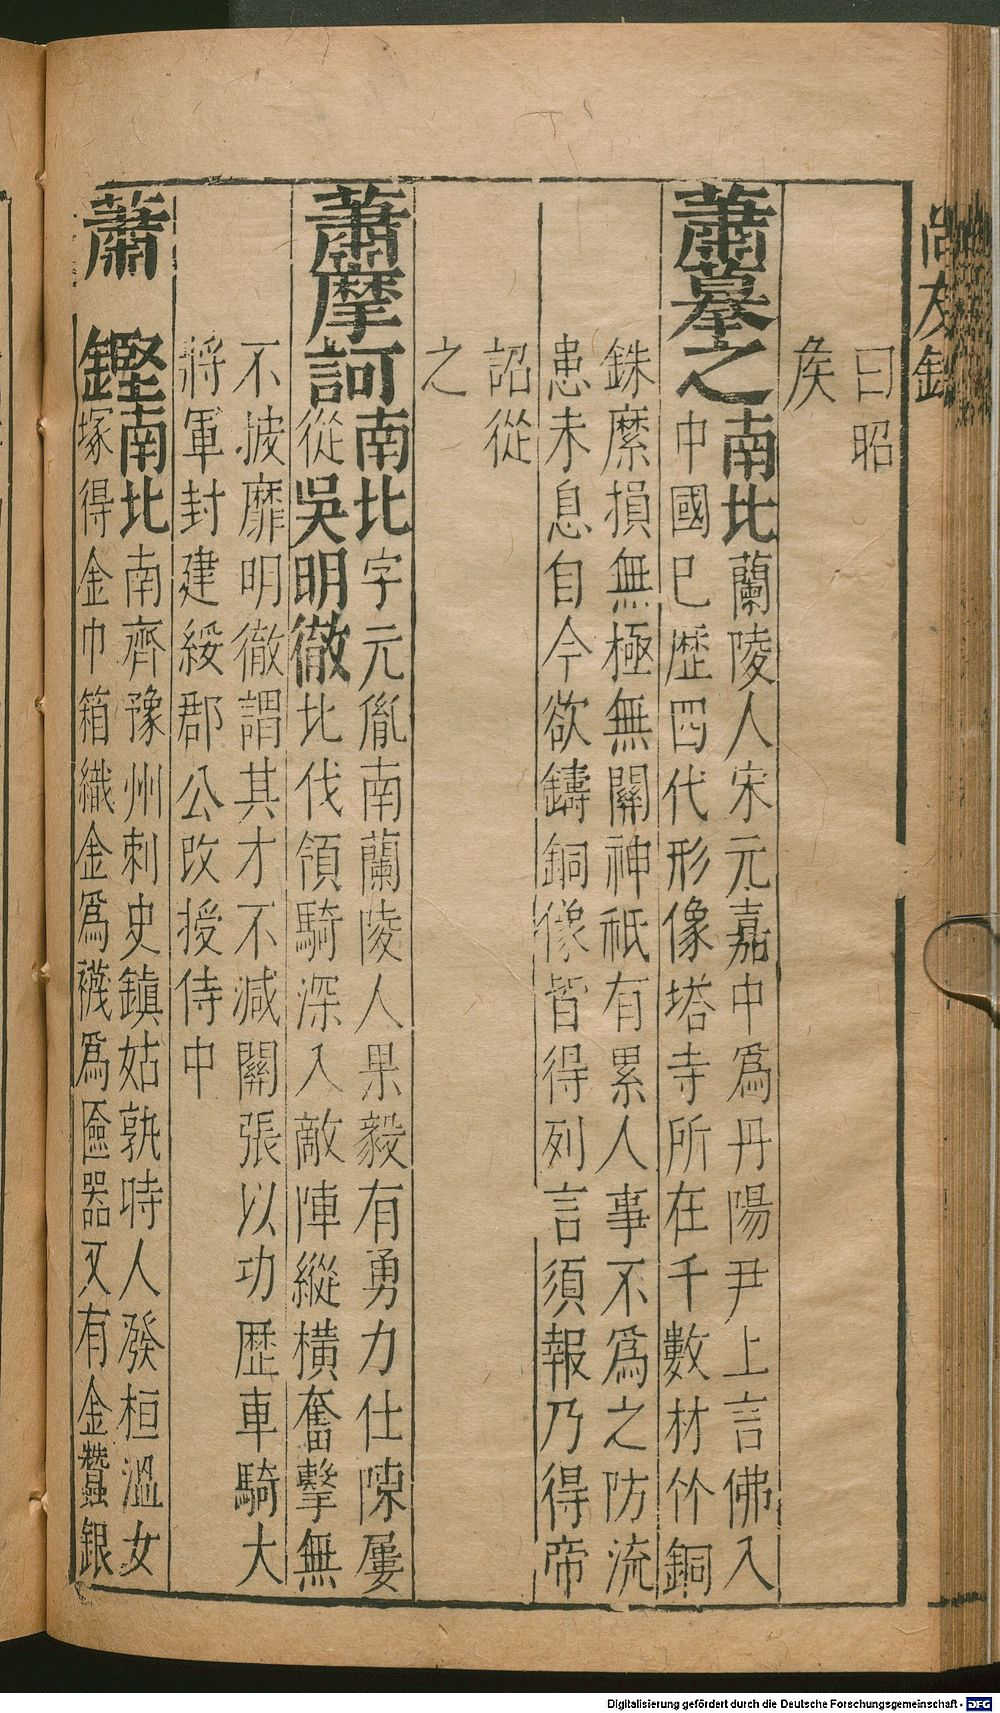 尚友錄
曰昭
矦
蕭摹之南北蘭陵人宋元嘉中爲丹陽尹上言佛入
中國已歴四代形像塔寺所在千數材竹銅
銖縻損無極無關神祇有累人事不爲之防流
患未息自今欲鑄銅像皆得列言須報乃得帝
詔從
之
蕭摩訶南北字元胤南蘭陵人果毅有勇力仕陳屢
從吳明徹北伐領騎深入敵陣縱橫奮擊無
不披靡明徹謂其才不減關張以功歴車騎大
將軍封建綏郡公改授侍中
蕭鏗南北南齊豫州刺史鎮姑孰時人發桓溫女
塚得金巾箱織金爲襪爲匳器又有金蠶銀
Digitalisierung gefördert durch die Deutsche Forschungsgemeinschaft - DFG